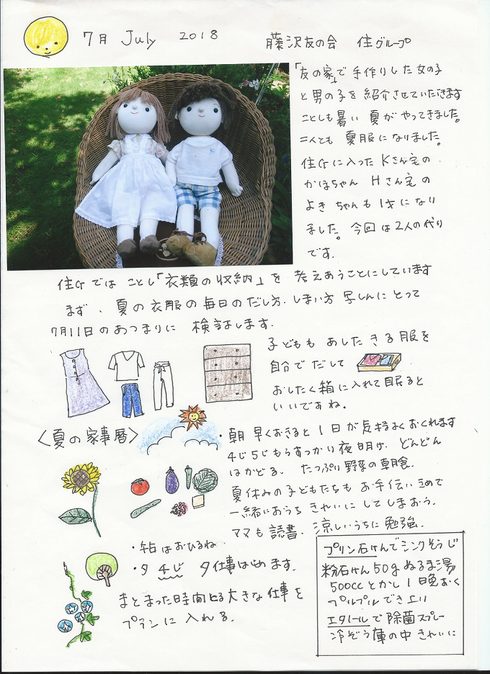 7月 July 2018
藤沢友の会 住グループ
「友の家」で手作りした女の子
と男の子を紹介させていただきます
ことしも暑い夏がやってきました。
二人とも夏服になりました。
住Grに入ったKさん宅の
かほちゃん Hさん宅の
よきちゃんも1才になり
ました。今回は2人の代り
です。
住Grではことし「衣類の収納」を考えあうことにしています
まず、夏の衣服の毎日のだし方、しまい方写しんにとって
7月11日のあつまりに検討します。
子どももあしたきる服を
自分でだして
おしたく箱に入れて眠ると
いいですね。
〈夏の家事暦〉
・朝早くおきると1日が気持よくおくれます
4じ5じもうすっかり夜明け、どんどん
はかどる。たっぷり野菜の朝食。
夏休みの子どもたちもお手伝いきめて
一緒におうちきれいにしてしまおう。
ママも読書、涼しいうちに勉強。
・午后はおひるね
・夕4じ 夕仕事はじめます。
まとまった時間とる大きな仕事を
プランに入れる。
プリン石けんでシンクそうじ
粉石けん50gぬるま湯
500ccとかし1晩おく
プルプルでき上り
エタノールで除菌スプレー
冷ぞう庫の中きれいに